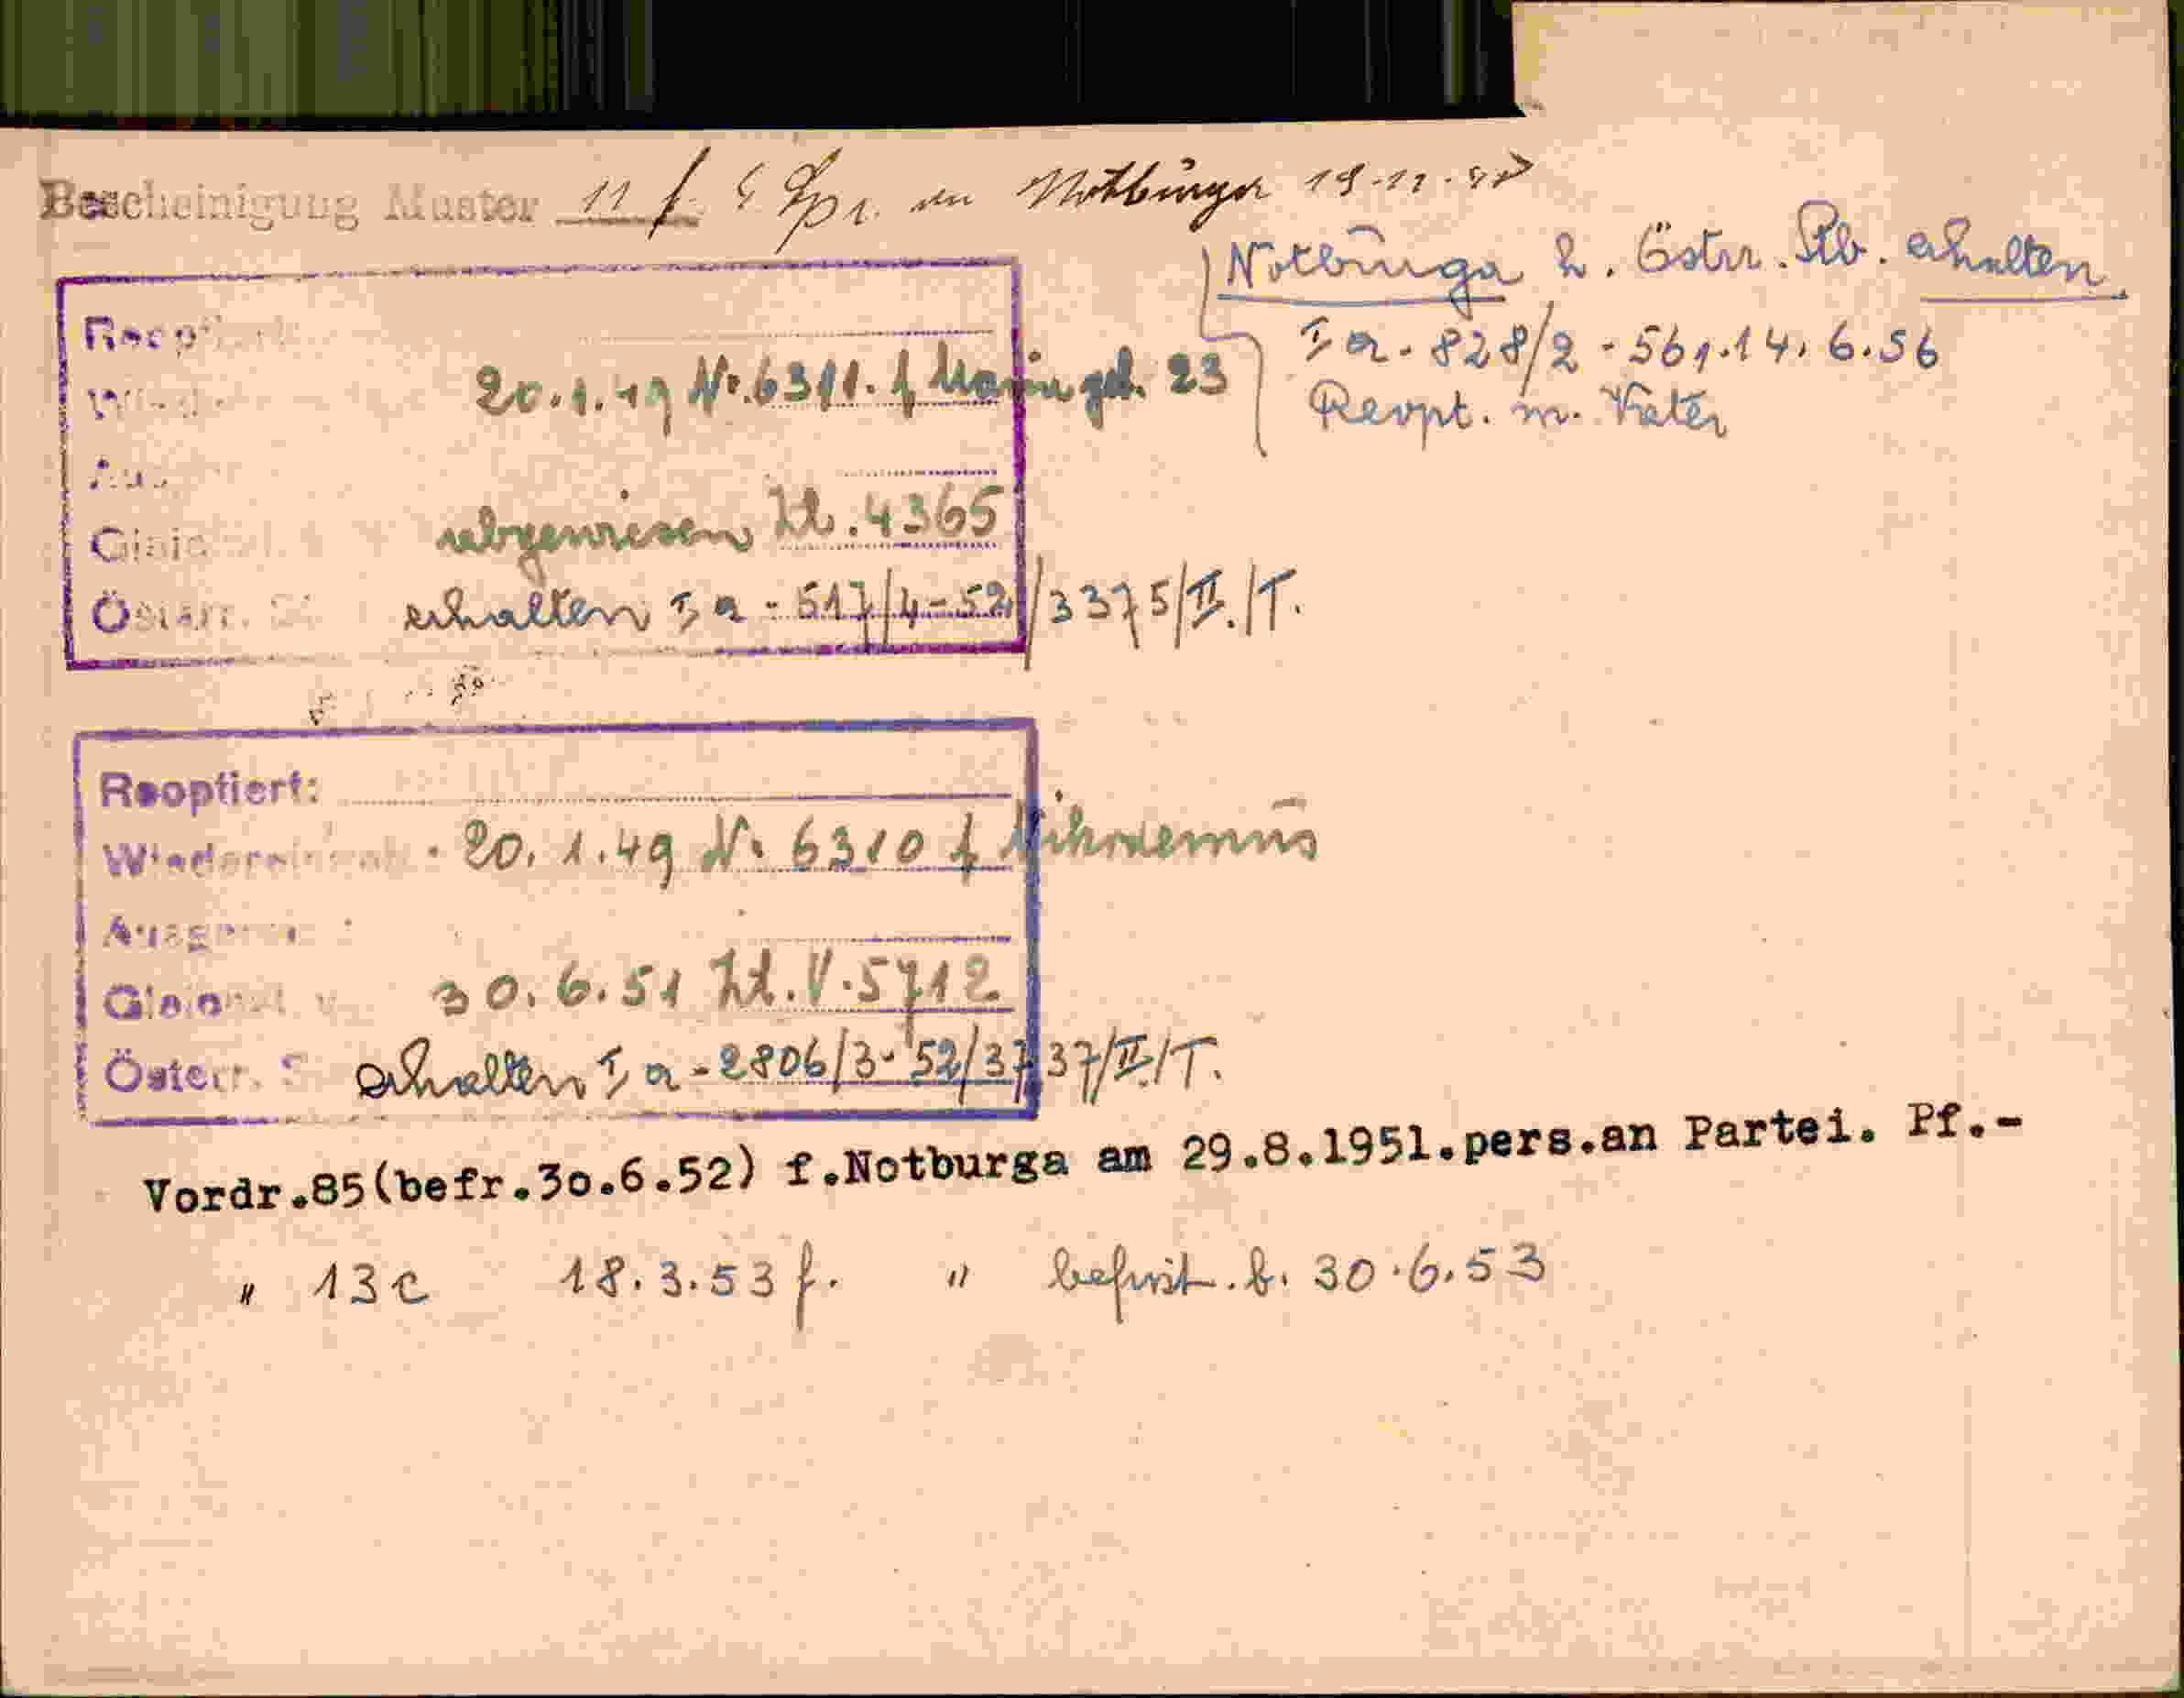 Bescheinigung Muster 11 f. 5 Spr. an Notburga 19.11.
Notburga h. Östrr. Stb. erhalten
I a. 828/2 - 56, 14. 6. 56
Reopt. m. Vater
20.1.49 Nr. 6311. f Maria geb. 23
abgewiesen Zl. 4365
Österr. erhalten I a - 517/4-52/3375/II./T.
Reoptiert:
20. 1. 49 Nr. 6310 f Nikodemus
30. 6. 51 Zl. V. 5712
Österr. S erhalten I a - 2806/3-52/3737/II./T.
Vordr.85(befr.30.6.52) f.Notburga am 29.8.1951.pers.an Partei. Pf.-
" 13c 18. 3. 53 f. " befrist. b. 30. 6. 53